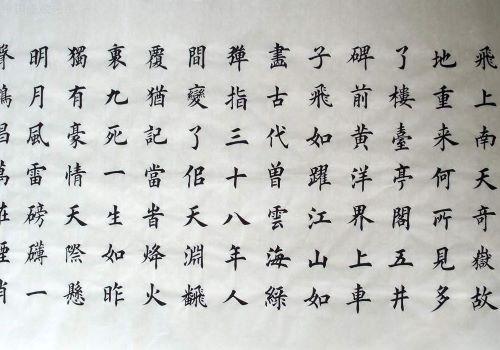 飛上南天奇嶽故
地重来何所見多
了樓臺亭閣五井
碑前黄洋界上車
子飛如躍江山如
畫古代曾雲海緑
彈指三十八年人
間變了佀天淵飜
覆猶記當旹烽火
裏九死一生如昨
獨有豪情天際懸
明月風雷磅礴一
聲萬煙